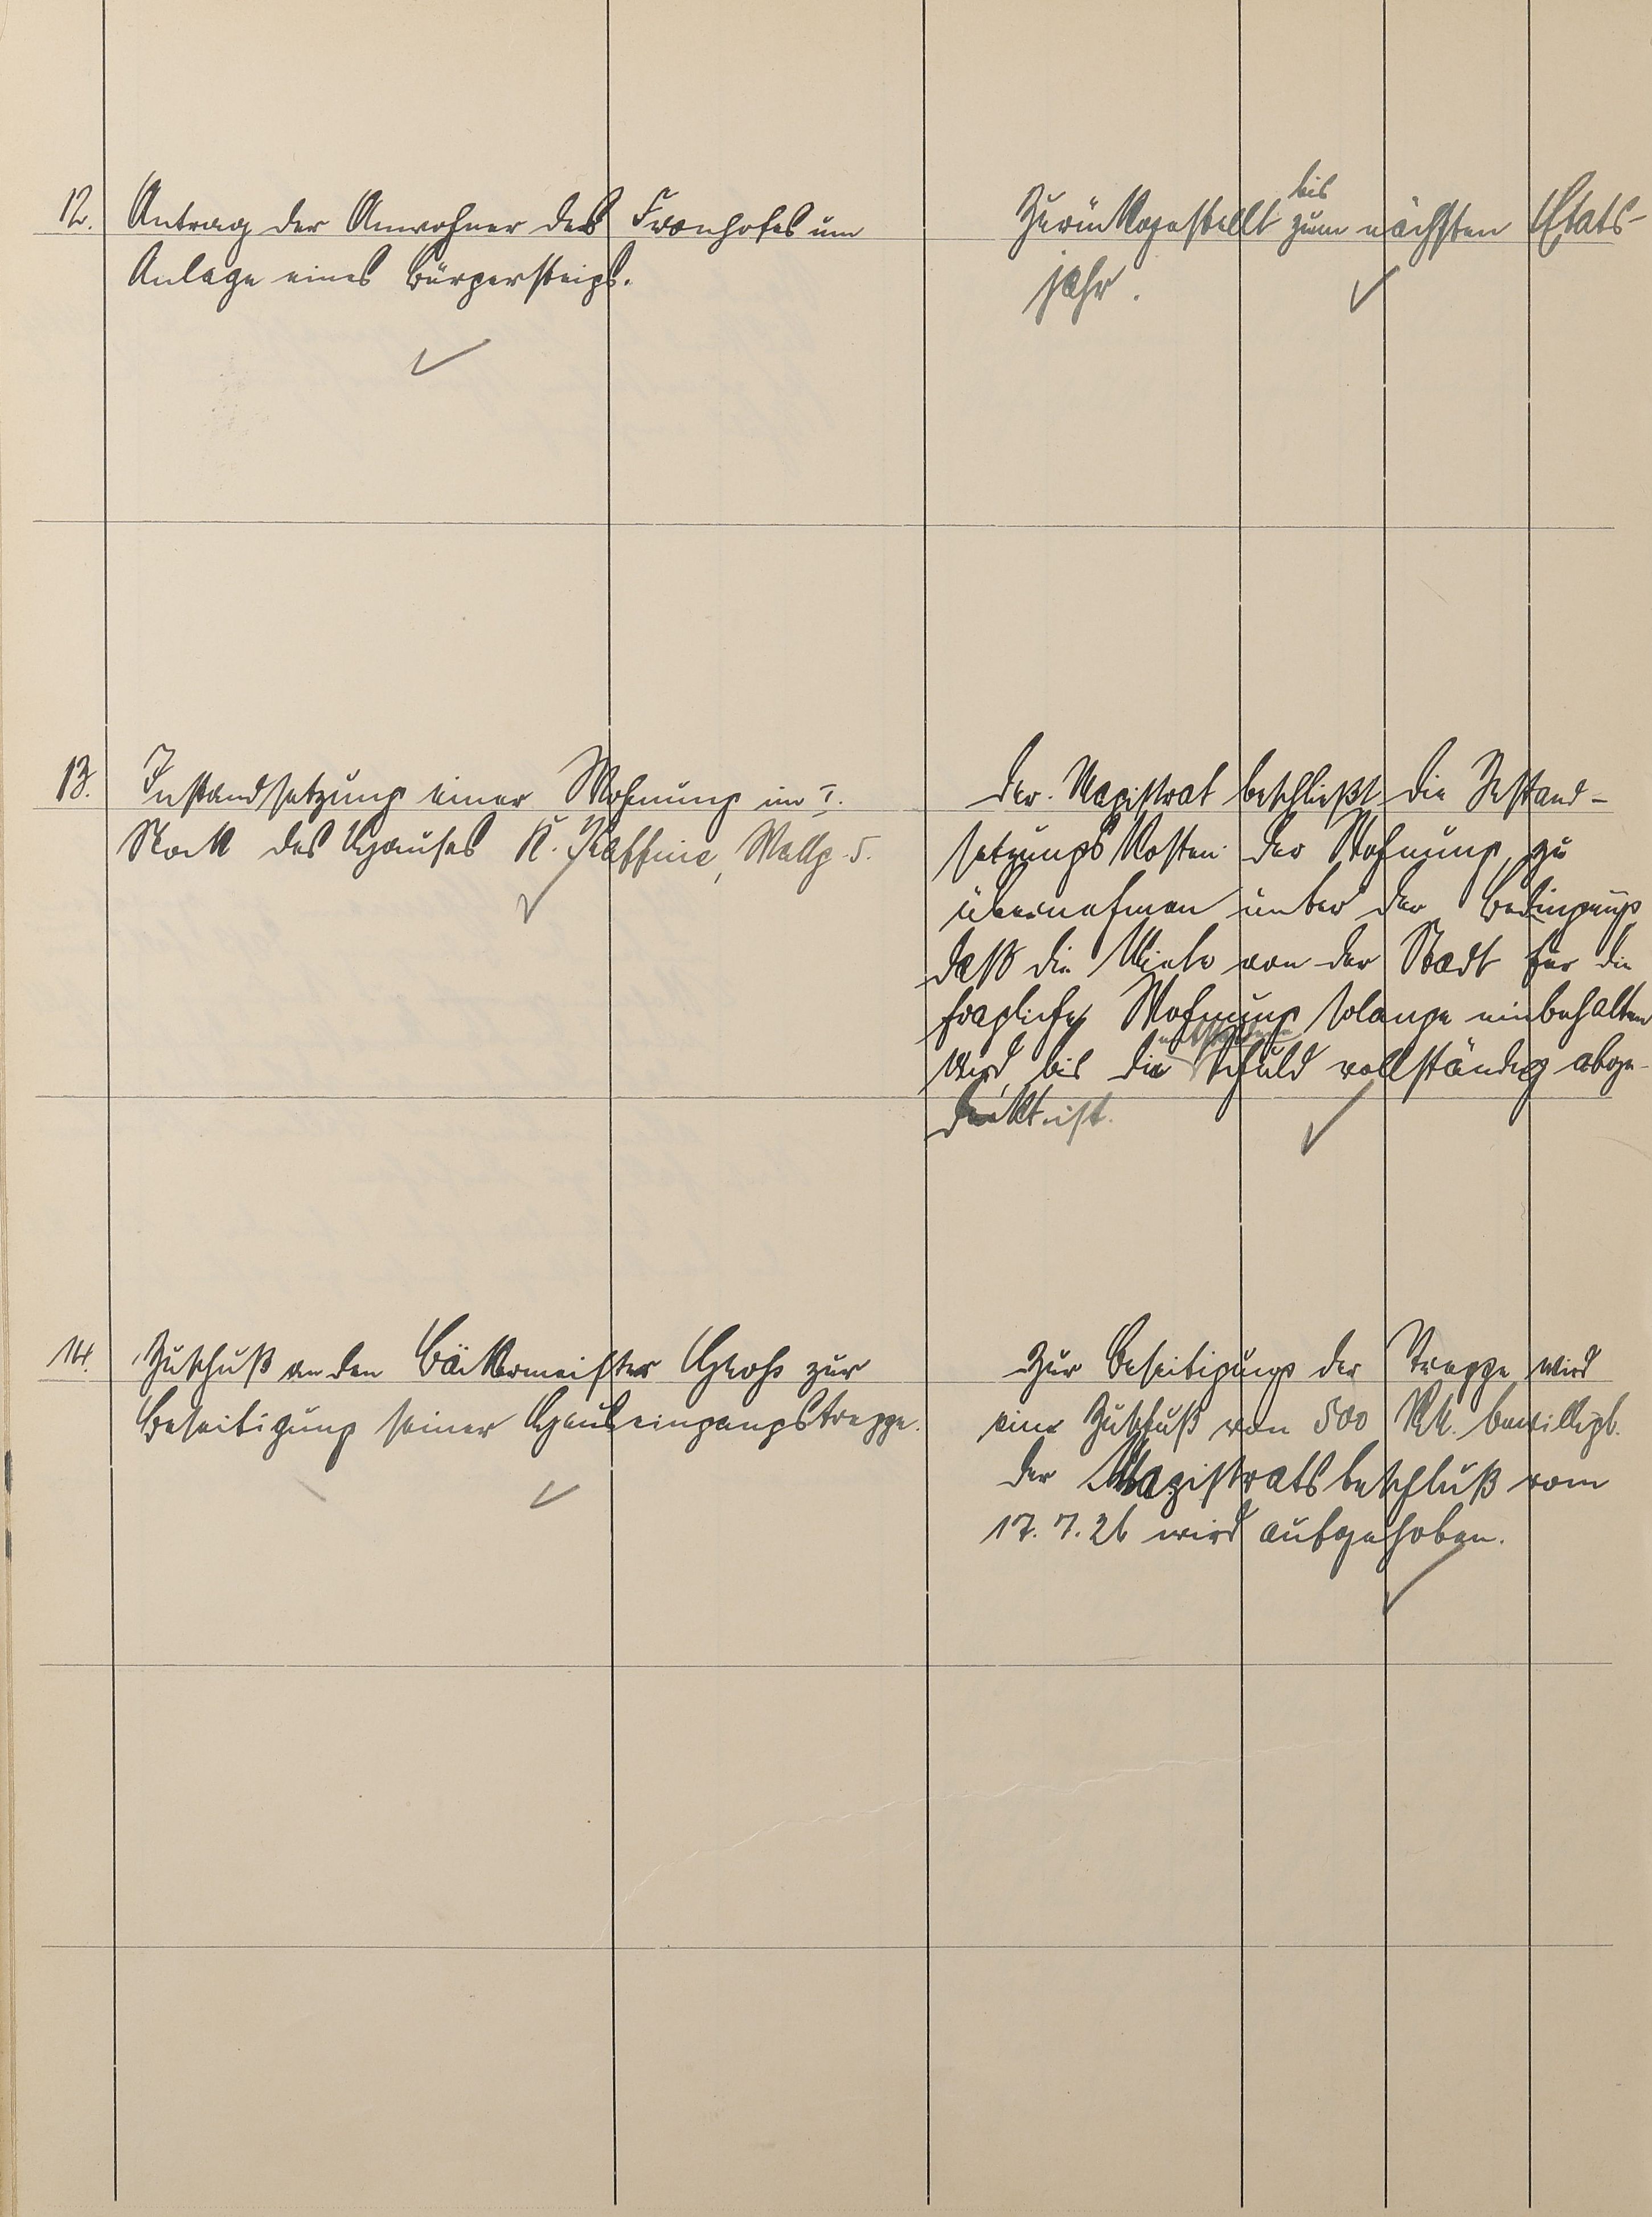 12. Antrag der Anwohner des Fronhofes um
Anlage eines Bürgersteigs.
bis
Zurückgestellt zum nächsten Etats-
jahr.
13. Instandsetzung einer Wohnung im I.
Stock des Hauses K. Wallg. 5.
Der Magistrat beschließt die Instand-
setzungskosten der Wohnung zu
übernehmen unter der Bedingung
daß die Miete von der Stadt für die
fragliche Wohnung solange einbehalten
wird, bis die Schuld vollständig abge-
deckt ist.
14. Zuschuß an den Bäckermeister Groß zur
Beseitigung seiner Hauseingangstreppe.
Zur Beseitigung der Treppe wird
eine Zuschuß von 500 Mk. bewilligt.
Der Magistratsbeschluß vom
17.7.26 wird aufgehoben.